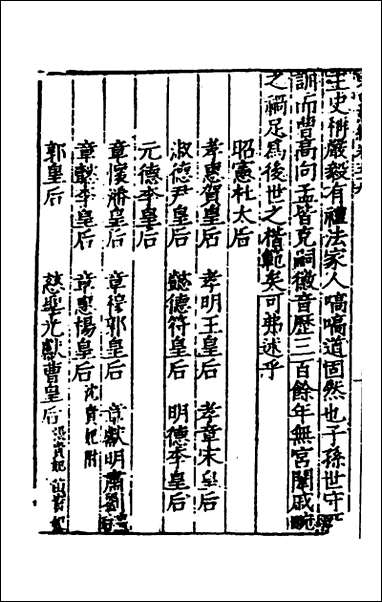 主史稱嚴毅有禮法家人嗃嗃道固然也子孫世守其
訓而曹高向孟皆克嗣徽音歷三百餘年無宮闈戚畹
之禍足為後世之楷範矣可弗述乎
昭憲杜太后
孝惠賀皇后 孝明王皇后 孝章宋皇后
淑德尹皇后 懿德符皇后 明德李皇后
元德李皇后
章懷潘皇后 章穆郭皇后 章獻明肅劉
章懿李皇后 章惠楊皇后 沈貴妃附
郭皇后 慈聖光獻曹皇后 張貴妃 苗貴妃